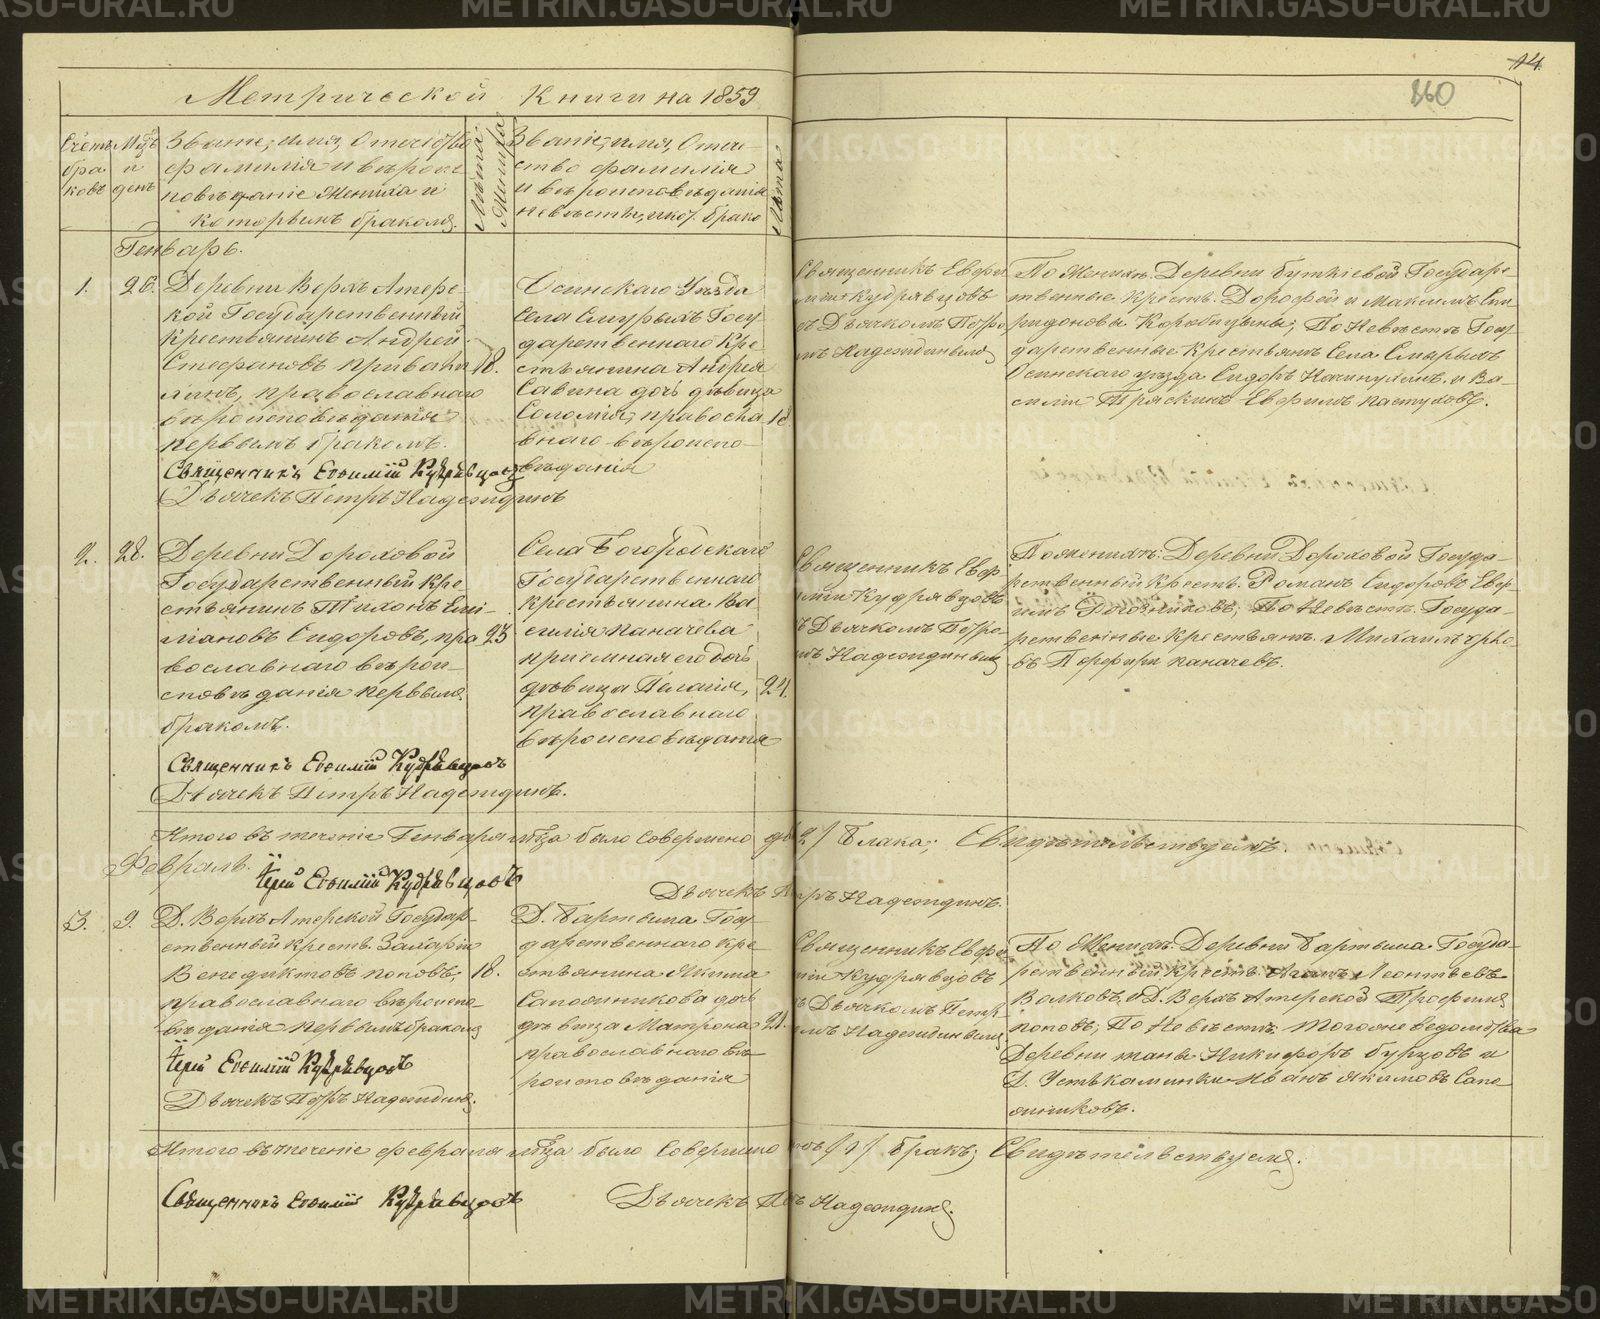 METRIKI.GASO-URAL.RU
14
360
Метрической Книги на 1859
Счетъ бра ковъ
Мцъ и день
Званіе, имя, Отечество
фамилія и вѣрои
повѣданіе Жениха и
которымъ бракомъ.
Лѣта Жениха
Званіе, имя, Отече
ство фамилія
и вѣроисповѣданіе
невѣсты, и кот. брако
Лѣта
Генварь.
1.
26.
Деревни Верхъ Атерс-
кой Государственный
Крестьянинъ Андрей
Стефановъ
православнаго
вѣроисповѣданія
первымъ бракомъ.
18.
Священникъ Евѳимій Кудрявцовъ
Дьячекъ Петръ Надеждинъ
Осинскаго Уѣзда
Села Госу-
дарственнаго Кре-
стьянина Андрея
Савина дочь дѣвица
Соломія, правосла-
внаго вѣроиспо-
вѣданія
18
Священникъ Евфи
міи Кудрявцовъ
съ Дьячкомъ Петро
мъ Надеждинымъ
По Женихѣ: Деревни Государс-
твенные Крест. Дорофей и Максимъ Спи-
ридоновы По Невѣстѣ Госу-
дарственные Крестьяне Села
Осинскаго уѣзда Сидоръ и Ва-
силіи Ефимъ Пастуховъ.
2.
28.
Деревни Дороховой
Государственный Кре
стьянинъ Тихонъ Емі-
ліановъ Сидоровъ, пра
вославнаго вѣрои-
сповѣданія первымъ
бракомъ.
23
Священникъ Евѳимій Кудрявцовъ
Дьячекъ Петръ Надеждинъ.
Села Богородскаго
Государственнаго
крестьянина Ва-
силія Паначева
пріемная его дочь
дѣвица Пелагія,
православнаго
вѣроисповѣданія
24.
Священникъ Евф
иміи Кудрявцовъ
съ Дьячкомъ Петро-
мъ Надеждинымъ
По женихѣ: Деревни Дороховой Госуда-
рственный Крест. Романъ Сидоровъ Ефи-
имъ По Невѣстѣ Госуда-
рственные Крестьяне Михаилъ
Порфири Паначевъ.
Итого въ теченіе Генваря мѣца было совершено два /2/ брака; Свидѣтельствуемъ.
Іерей Евѳимій Кудрявцовъ
Дьячекъ Петръ Надеждинъ.
Февраль.
3.
9.
Д. Верхъ Атерской Государ-
ственный крест. Захарій
Венедиктовъ поповъ,
православнаго вѣроиспо-
вѣданія первымъ бракомъ
18.
Іерей Евѳимій Кудрявцовъ
Дьячекъ Петръ Надеждинъ.
Д. Бартыма Госу-
дарственнаго Кре-
стьянина Якима
Сапожникова дочь
дѣвица Матрона
православнаго вѣ-
роисповѣданія
21.
Священникъ Евфи
міи Кудрявцовъ
съ Дьячкомъ Петр-
омъ Надеждинымъ
По Женихѣ: Деревни Бартыма Госуда-
рственный Крест. Леонтьевъ
Волковъ, Д. Верхъ Атерской Трофимъ
поповъ; По Невѣстѣ того же ведомства
Деревни Никифоръ Бурцовъ и
Д. Усть Иванъ Якимовъ Сапо
жниковъ.
Итого въ теченіе февраля мѣца было Совершено одинъ /1/ бракъ; Свидѣтельствуемъ.
Священникъ Евѳимій Кудрявцовъ
Дьячекъ Петръ Надеждинъ.